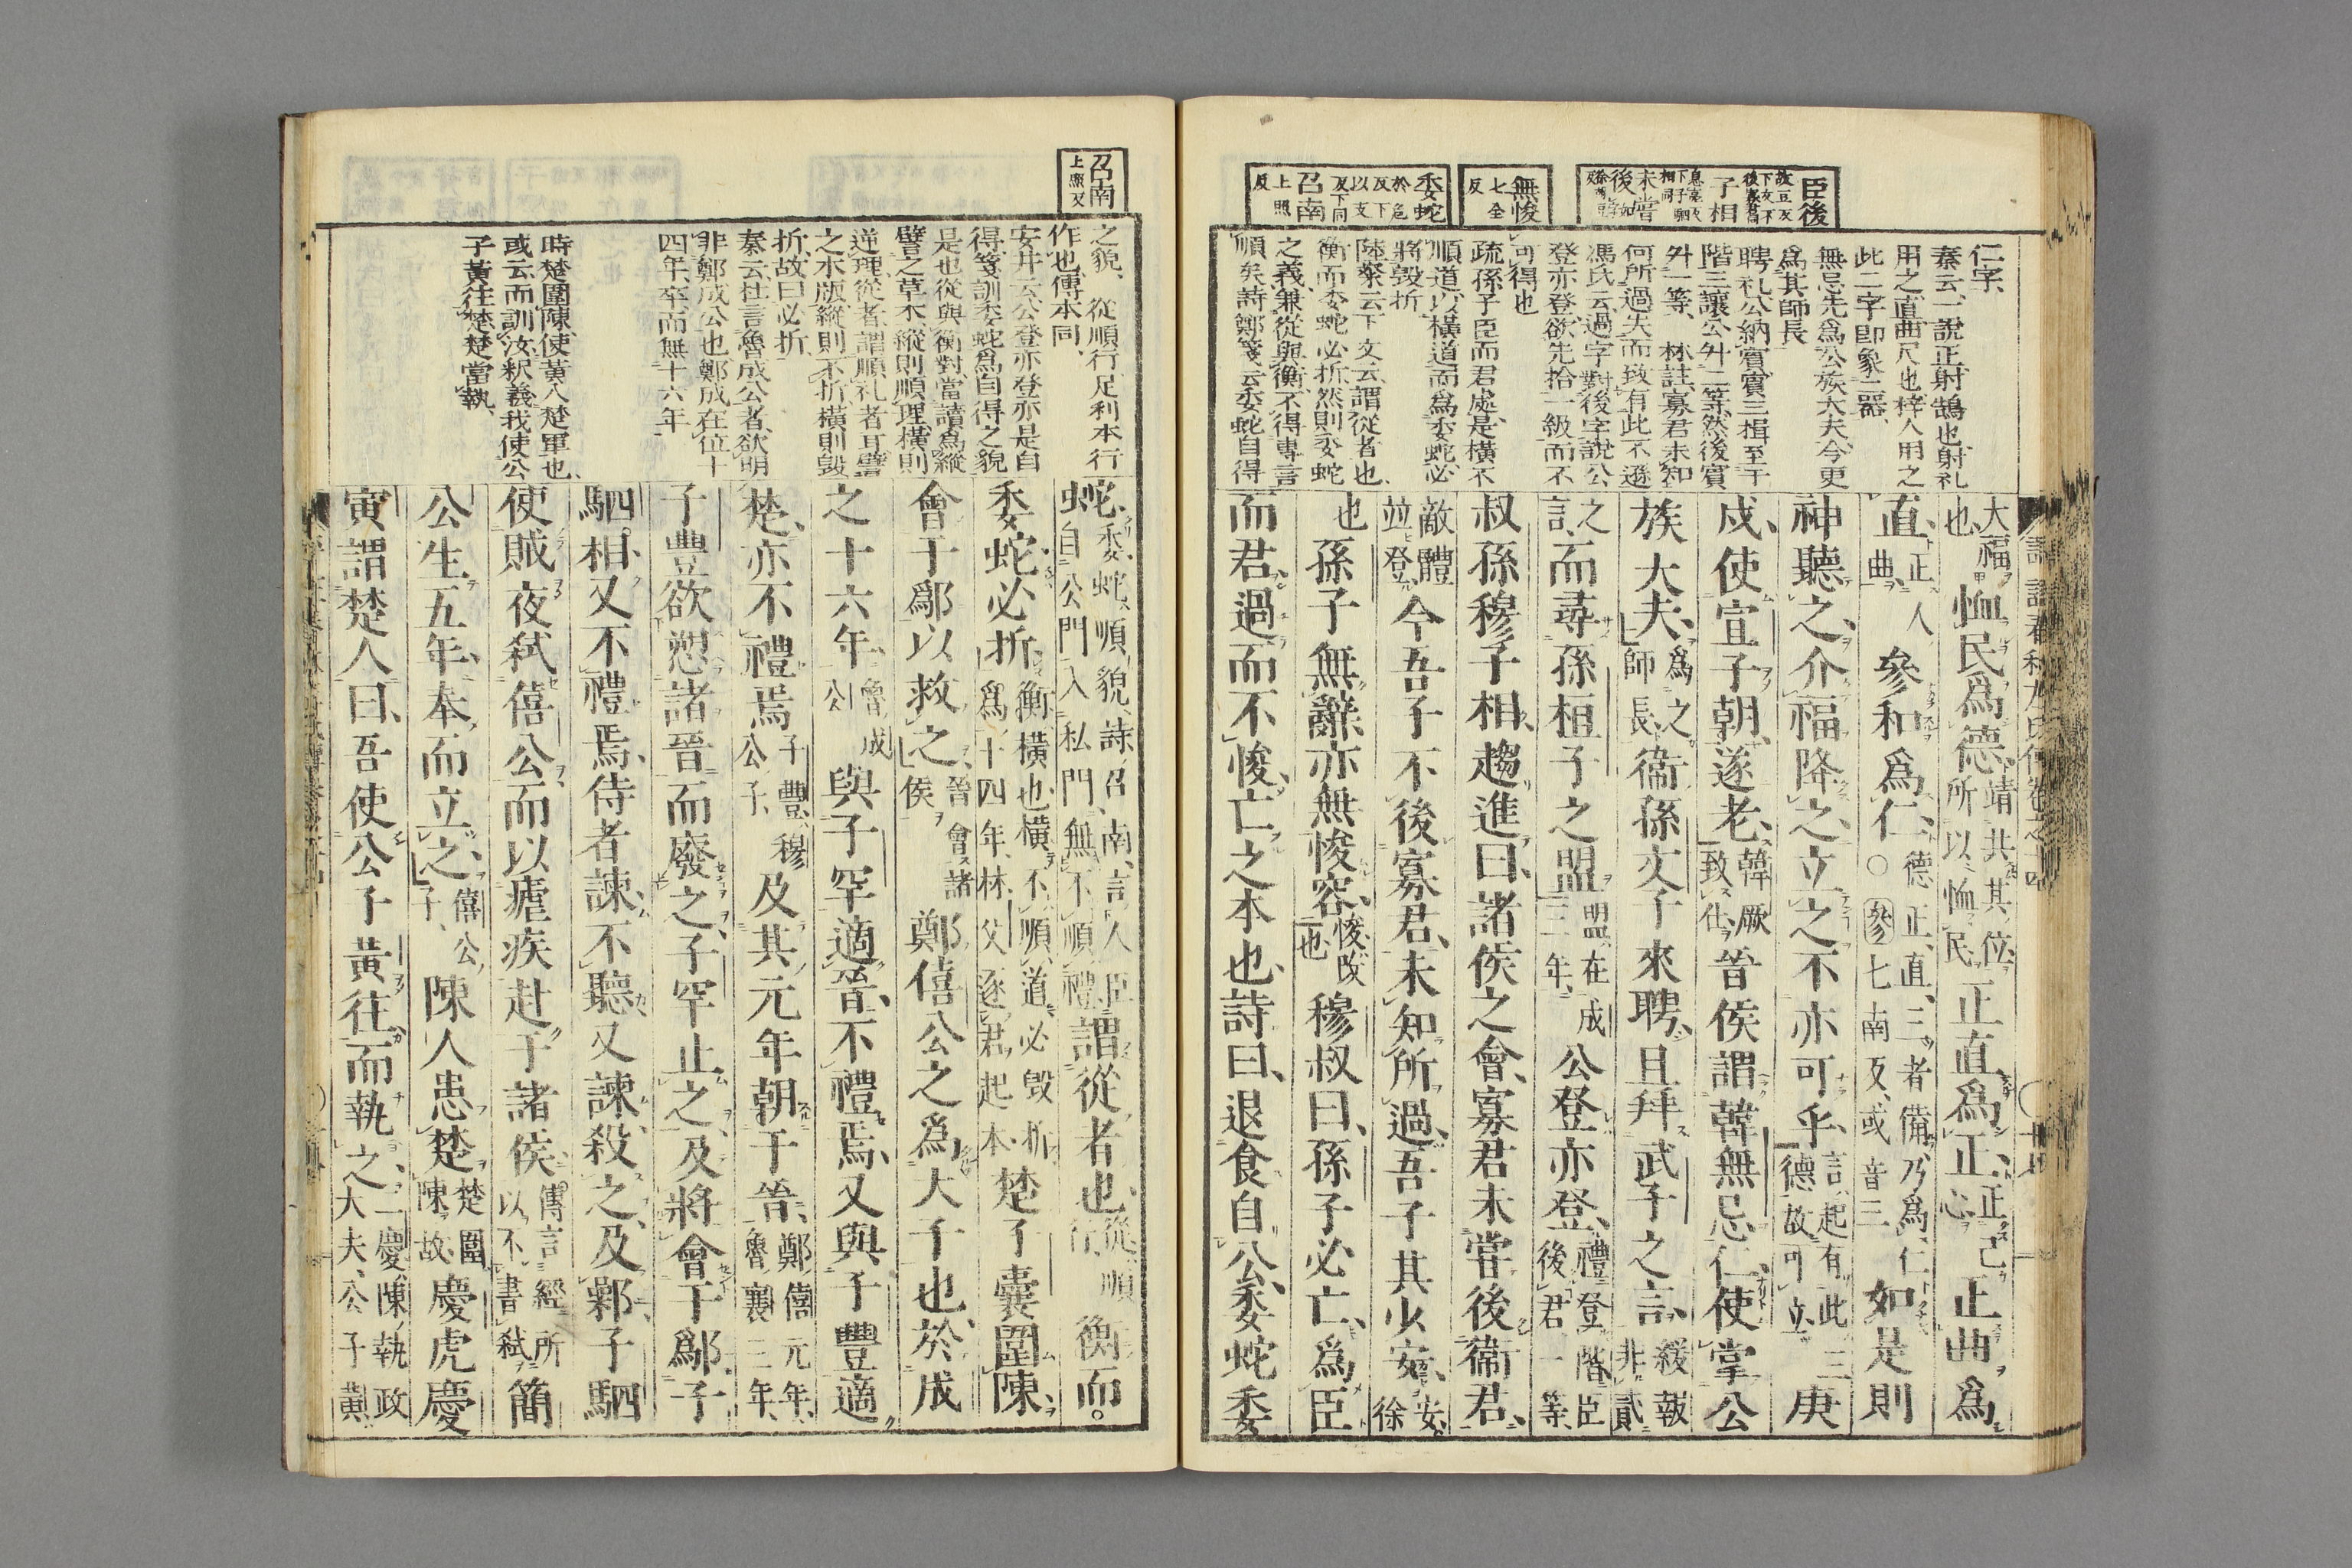 臣後
故豆反
下文不
後寡君
同
子相
息亮反
下子駟
相同
未嘗
後如
字
無悛
七全
反
委蛇
於危
反下
以支
反下同
召南
上照
反
仁字
秦云一說正射鵠也射礼
用之直曲尺也梓人用之
此二字即象二器
無忌先為公族大夫今更
為其師長
聘礼公納賓賓三揖至于
階三讓公升二等然後賓
升一等　林註寡君未知
何所過失而致有此不遜
馮氏云過字對後字說公
登亦登欲先拾一級而不
可得也
疏孫子臣而君處是橫不
順道以橫道而為委蛇必
將毀折
陸粲云下文云謂從者也
衡而委蛇必折然則委蛇
之義兼從與衡不得專言
順矣詩鄭箋云委蛇自得
大福也恤民為德靖共其位所以恤民正直為正正己心正曲為
直正人曲參和為仁德正直三者備乃為仁○參七南反或音三如是則
神聽之介福降之立之不亦可乎言起有此三德故可立庚
戌使宣子朝遂老韓厥致仕晉侯謂韓無忌仁使掌公
族大夫為之師長衞孫文子來聘且拜武子之言緩報非貳
之言而尋孫桓子之盟盟在成三年公登亦登禮登階臣後君一等
叔孫穆子相趨進曰諸侯之會寡君未嘗後衞君
敵體竝登今吾子不後寡君未知所過吾子其少安安徐
也孫子無辭亦無悛容悛改也穆叔曰孫子必亡為臣
而君過而不悛亡之本也詩曰退食自公委蛇委
召南
上照反
之貌　從順行足利本行
作也傳本同
安井云公登亦登亦是自
得箋訓委蛇為自得之貌
是也從與衡對當讀為縱
譬之草木縱則順理橫則
逆理從者謂順礼者耳譬
之木版縱則不折橫則毀
折故曰必折
秦云杜言魯成公者欲明
非鄭成公也鄭成在位十
四年卒而無十六年
時楚圍陳使黃入楚軍也
或云而訓汝釈義我使公
子黃往楚楚當執
蛇委蛇順貌詩召南言人臣自公門入私門無不順禮謂從者也從順行衡而
委蛇必折衡橫也橫不順道必毀折為十四年林父逐君起本楚子囊圍陳
會于鄬以救之晉會諸侯鄭僖公之為大子也於成
之十六年魯成公與子罕適晉不禮焉又與子豐適
楚亦不禮焉子豐穆公子及其元年朝于晉鄭僖元年魯襄三年
子豐欲愬諸晉而廢之子罕止之及將會于鄬子
駟相又不禮焉侍者諫不聽又諫殺之及鄵子駟
使賊夜弒僖公而以瘧疾赴于諸侯傳言經所以不書弒簡
公生五年奉而立之僖公子陳人患楚楚圍陳故慶虎慶
寅謂楚人曰吾使公子黃往而執之二慶陳執政大夫公子黃